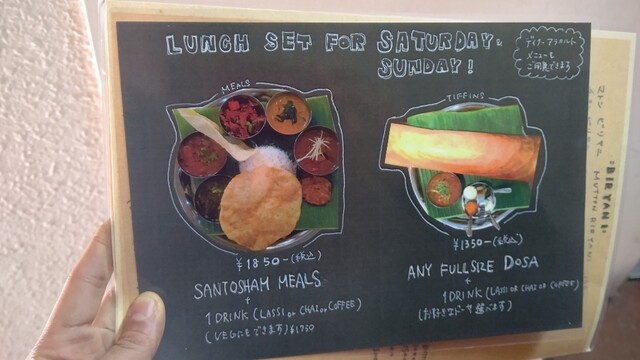 LUNCH SET FOR SATURDAY &
SUNDAY!
ディナーアラカルト
メニューも
ご用意できます
MEALS
¥1850-(税込)
SANTOSHAM MEALS
+
1 DRINK (LASSI or CHAI or COFFEE)
(VEGにもできます) ¥1750
TIFFINS
¥1350-(税込)
ANY FULLSIZE DOSA
+
1 DRINK (LASSI OR CHAI OR COFFEE)
(お好きなドーサ選べます)
BIRYANI
マトン ビリヤニ MUTTON BIRYANI